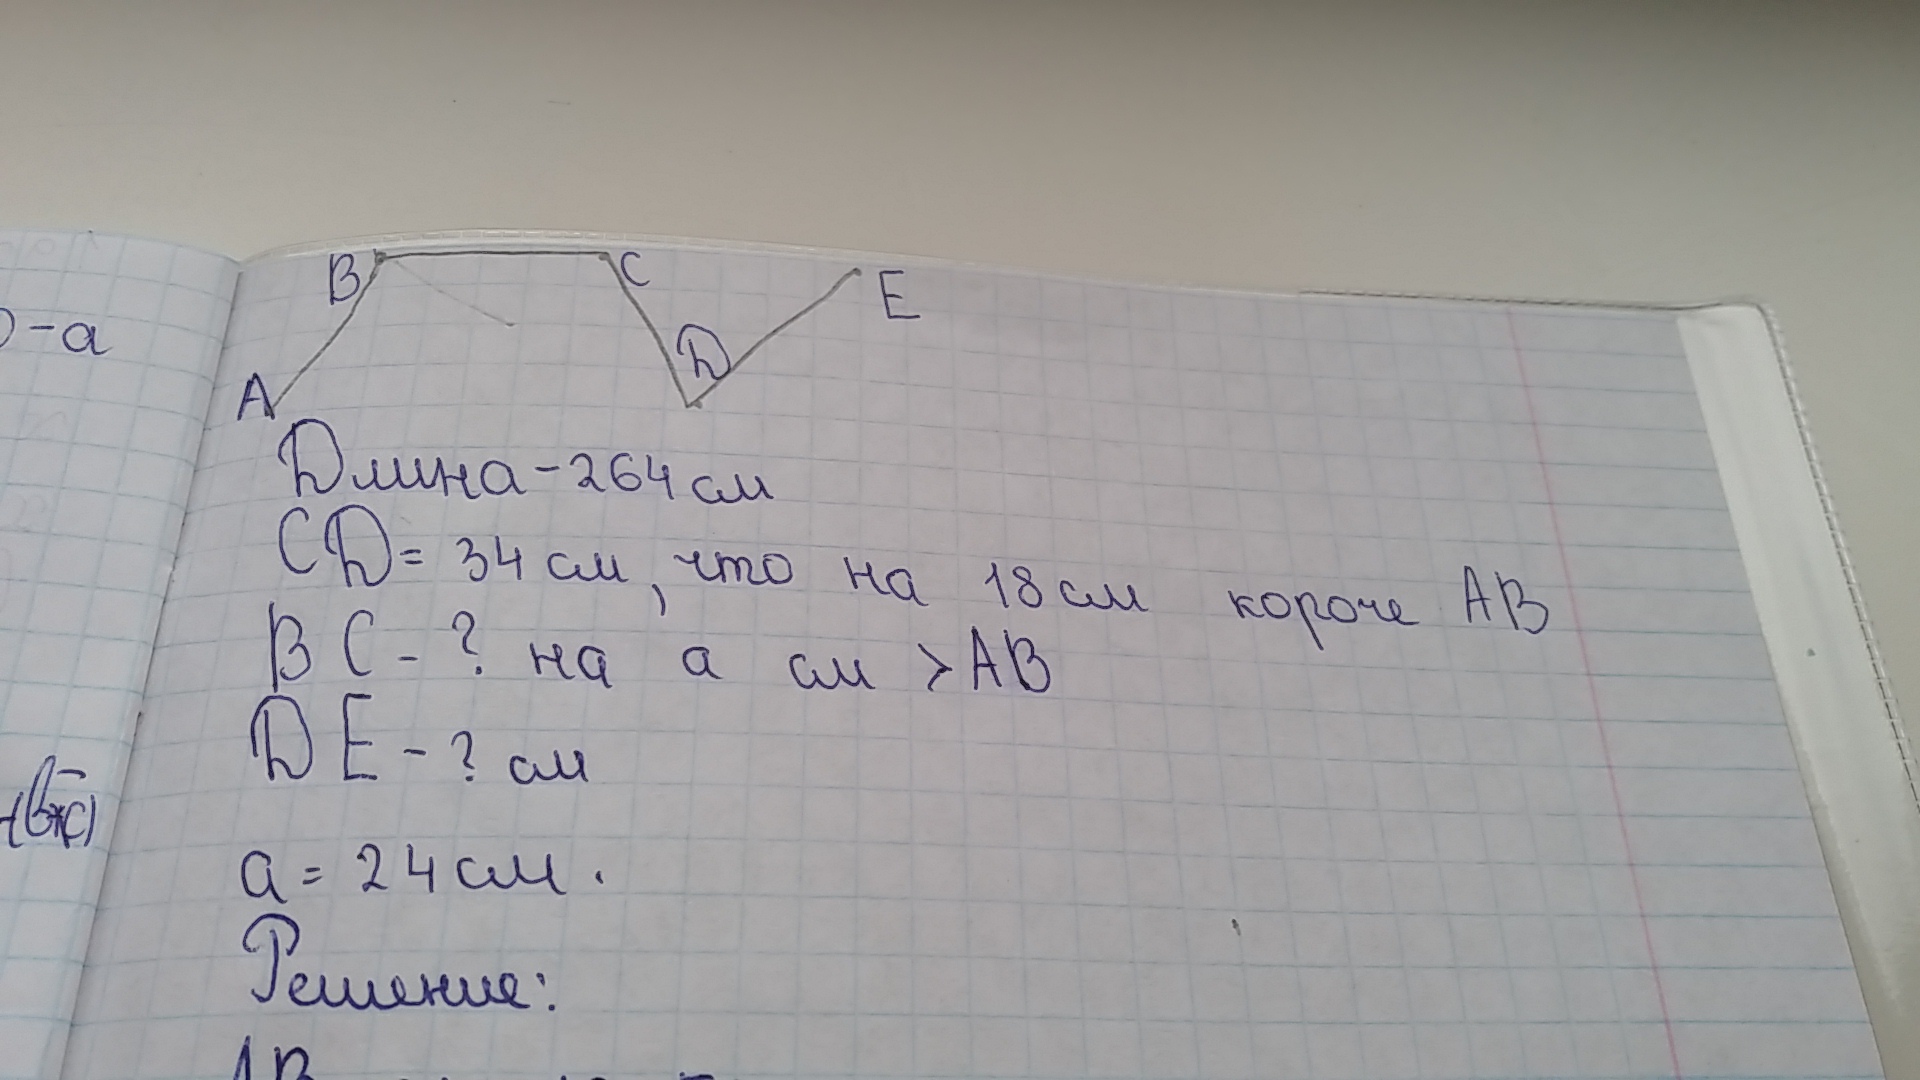 B C E
A D
-а
Длина - 264 см
CD = 34 см, что на 18 см короче AB
BC - ? на а см > AB
DE - ? см
а = 24 см.
Решение:
AB